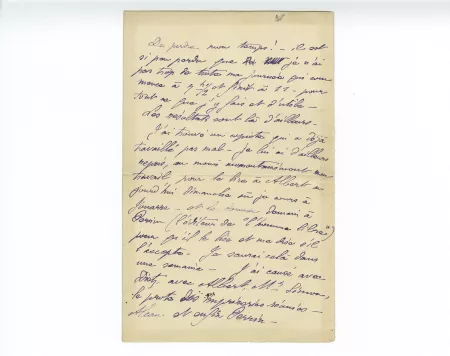 De perdre mon temps! — il est
si peu perdu que je n'ai
pas trop de toute ma journée qui com
mence à 9 h 1/2 et finit à 11 — pour
tout ce que j'y fais et d'utile —
Les résultats sont là d'ailleurs —
J'ai trouvé un copiste qui a déjà
travaillé pas mal — je lui ai d'ailleurs
repris, au moins momentanément mon
travail pour le lire à Albert au
jourd'hui dimanche où je serai à
Jouarre — et le donner demain à
Perrin (l'éditeur de "l'homme libre")
pour qu'il le lise et me dise s'il
l'accepte. Je saurai cela dans
une semaine — J'ai causé avec
avec Albert, Mr
le prote des Imprimeries réunies —
et enfin Perrin —